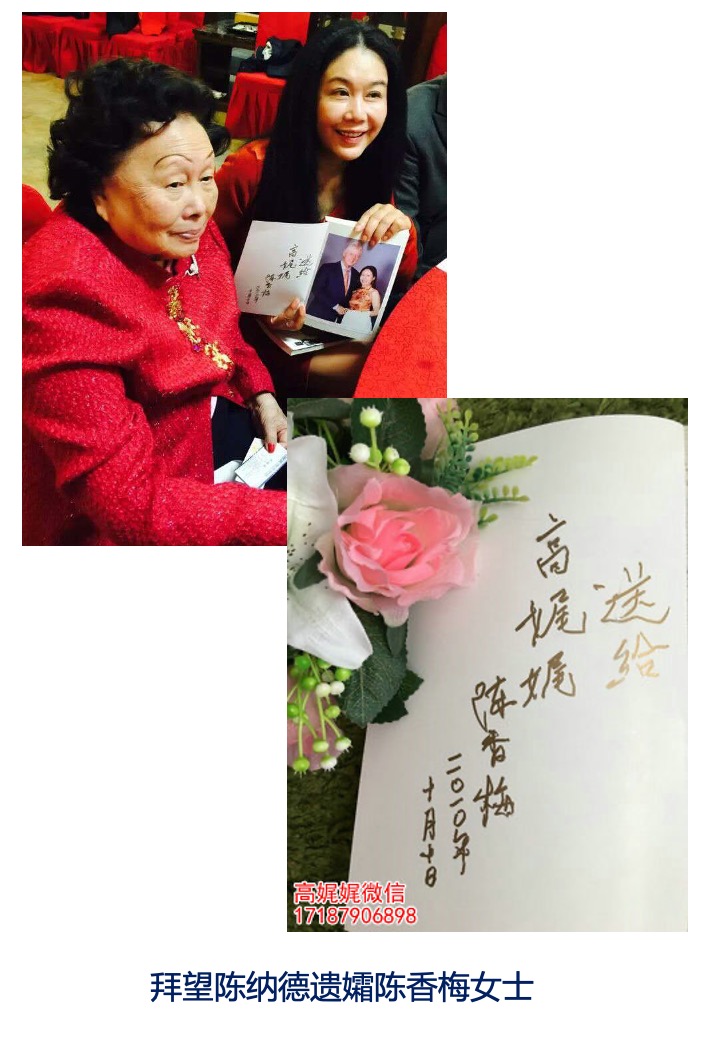 送给
高娓娓
陈香梅
送给
高娓娓
陈香梅
二〇一〇年
十月十日
高娓娓微信
17187906898
拜望陈纳德遗孀陈香梅女士